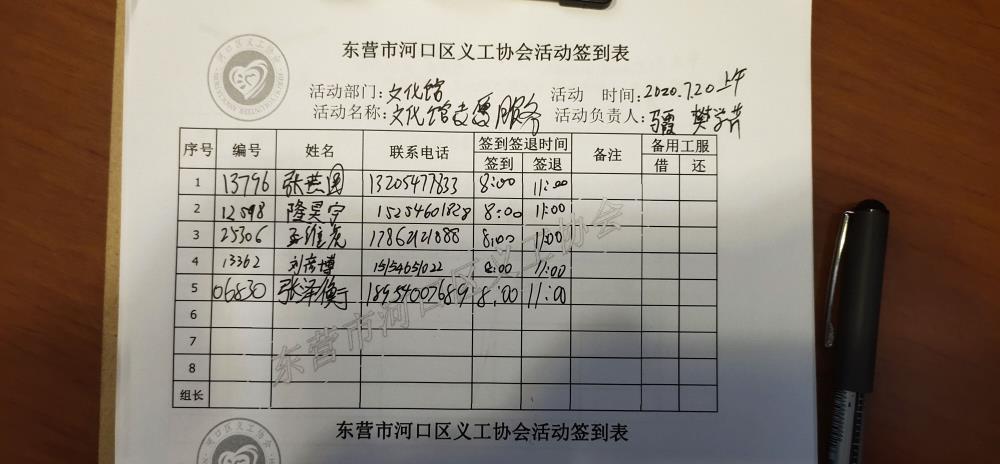 东营市河口区义工协会活动签到表
活动部门: 文化馆 活动 时间: 2020.7.20上午
活动名称: 文化馆志愿服务 活动负责人:
序号 编号 姓名 联系电话 签到签退时间 备注 备用工服
签到 签退 借 还
1 13796 张 13205477833 8:00 11:00
2 12598 隆昊宇 15254601828 8:00 11:00
3 25306 孟维 17862121888 8:00 11:00
4 13362 刘彦博 15154651022 8:00 11:00
5 06830 张泽衡 18954007689 8:00 11:00
6
7
8
组长
东营市河口区义工协会
东营市河口区义工协会活动签到表
河口区义工协会